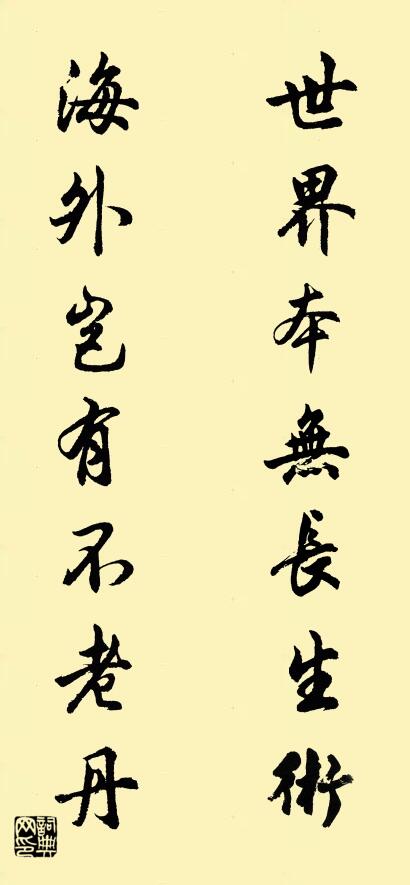 世界本無長生術
海外岂有不老丹
詞典网印